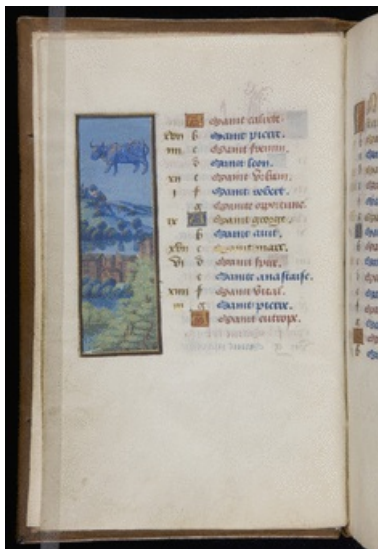 A Saint calixte.
xvii b Saint pierre.
c Saint fremin.
d Saint leon.
xii e Saint Urbain.
i f Saint robert.
g Sainte oportune.
ix A Saint george.
b Saint
xvii c Saint marc.
vi d Saint
e Sainte anastaise.
xiiii f Saint Vital.
iii g Saint pierre.
A Saint eutrope.